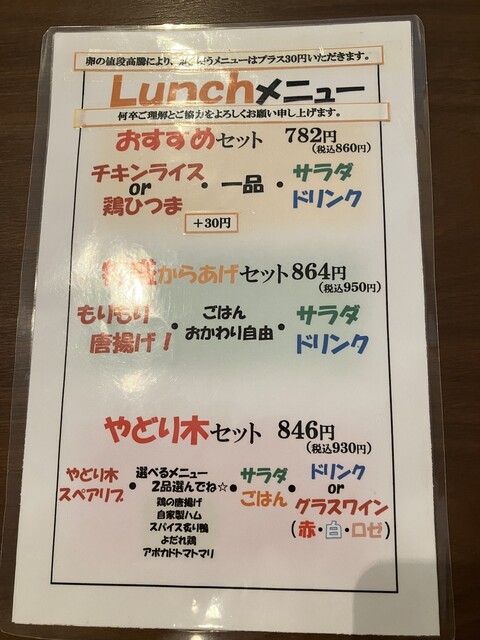 卵の値段高騰により、 うメニューはプラス30円いただきます。
Lunchメニュー
何卒ご理解とご協力をよろしくお願い申し上げます。
おすすめセット 782円
(税込860円)
チキンライス
or
鶏ひつま
・一品・
サラダ
ドリンク
+30円
からあげセット 864円
(税込950円)
もりもり
唐揚げ!
・ごはん
おかわり自由・
サラダ
ドリンク
やどり木セット 846円
(税込930円)
やどり木
スペアリブ
・選べるメニュー
2品選んでね☆・
鶏の唐揚げ
自家製ハム
スパイス炙り鴨
よだれ鶏
アボカドトマトマリ
サラダ
ごはん
・
ドリンク
or
グラスワイン
(赤・白・ロゼ)